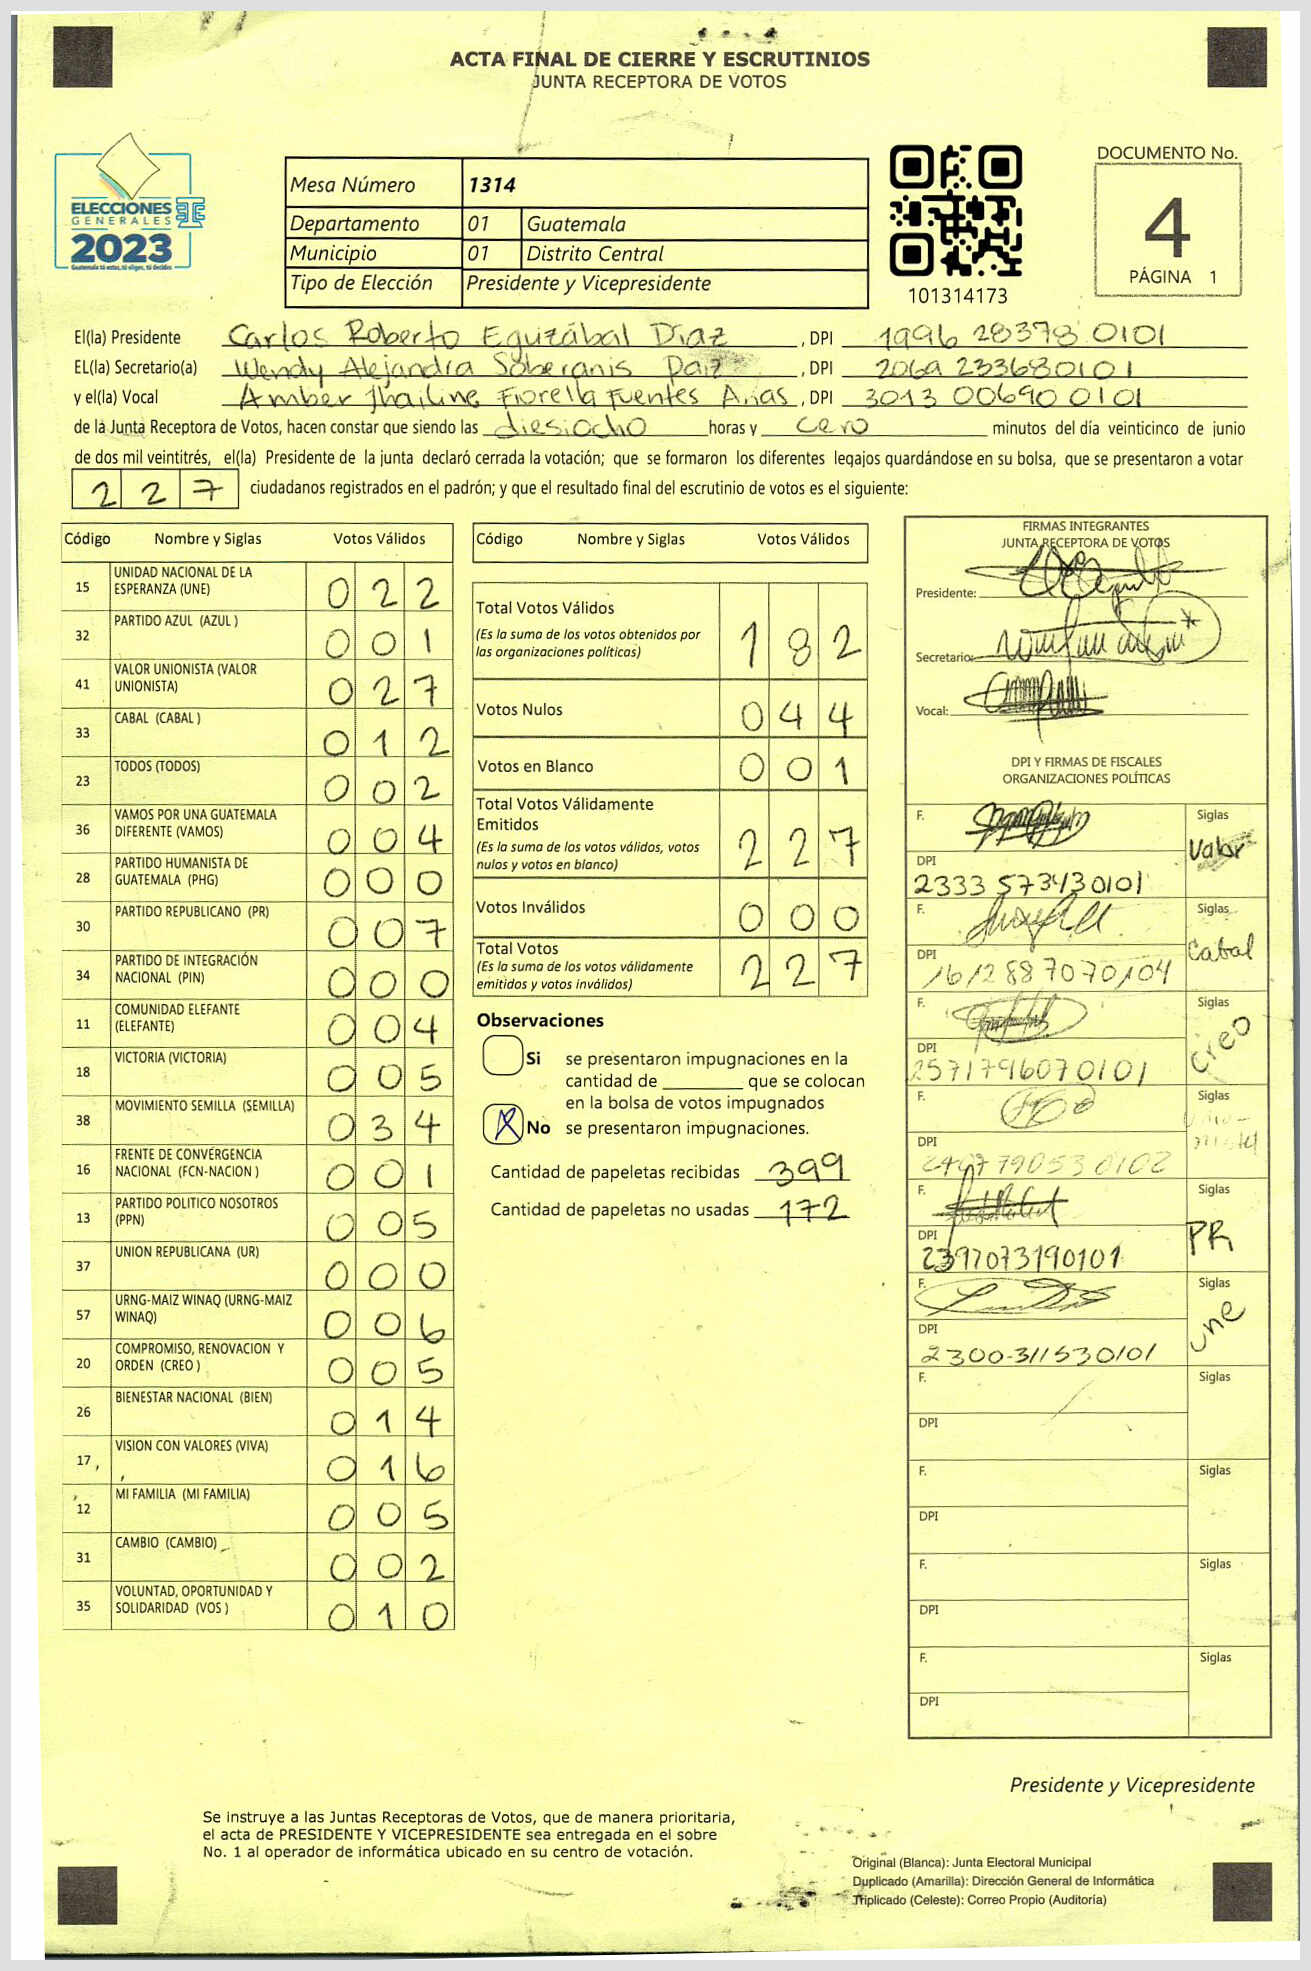 ACTA FINAL DE CIERRE Y ESCRUTINIOS
JUNTA RECEPTORA DE VOTOS
ELECCIONES
GENERALES
2023
Guatemala tú estas, tú eliges, tú decides
Mesa Número 1314
Departamento 01 Guatemala
Municipio 01 Distrito Central
Tipo de Elección Presidente y Vicepresidente
101314173
DOCUMENTO No.
4
PÁGINA 1
El(la) Presidente Carlos Roberto Eguizábal Díaz, DPI 1996 28378 0101
EL(la) Secretario(a) Wendy Alejandra Soberanis Paiz, DPI 2069 233680101
y el(la) Vocal Amber Jhailine Fiorella Fuentes Arias, DPI 3013 00690 0101
de la Junta Receptora de Votos, hacen constar que siendo las diesiocho horas y cero minutos del día veinticinco de junio
de dos mil veintitrés, el(la) Presidente de la junta declaró cerrada la votación; que se formaron los diferentes legajos guardándose en su bolsa, que se presentaron a votar
227 ciudadanos registrados en el padrón; y que el resultado final del escrutinio de votos es el siguiente:
Código Nombre y Siglas Votos Válidos
15 UNIDAD NACIONAL DE LA ESPERANZA (UNE) 022
32 PARTIDO AZUL (AZUL ) 001
41 VALOR UNIONISTA (VALOR UNIONISTA) 027
33 CABAL (CABAL ) 012
23 TODOS (TODOS) 002
36 VAMOS POR UNA GUATEMALA DIFERENTE (VAMOS) 004
28 PARTIDO HUMANISTA DE GUATEMALA (PHG) 000
30 PARTIDO REPUBLICANO (PR) 007
34 PARTIDO DE INTEGRACIÓN NACIONAL (PIN) 000
11 COMUNIDAD ELEFANTE (ELEFANTE) 004
18 VICTORIA (VICTORIA) 005
38 MOVIMIENTO SEMILLA (SEMILLA) 034
16 FRENTE DE CONVERGENCIA NACIONAL (FCN-NACION ) 001
13 PARTIDO POLITICO NOSOTROS (PPN) 005
37 UNION REPUBLICANA (UR) 000
57 URNG-MAIZ WINAQ (URNG-MAIZ WINAQ) 006
20 COMPROMISO, RENOVACION Y ORDEN (CREO ) 005
26 BIENESTAR NACIONAL (BIEN) 014
17 VISION CON VALORES (VIVA) 016
12 MI FAMILIA (MI FAMILIA) 005
31 CAMBIO (CAMBIO) 002
35 VOLUNTAD, OPORTUNIDAD Y SOLIDARIDAD (VOS ) 010
Código Nombre y Siglas Votos Válidos
Total Votos Válidos 182
(Es la suma de los votos obtenidos por
las organizaciones políticas)
Votos Nulos 044
Votos en Blanco 001
Total Votos Válidamente
Emitidos 227
(Es la suma de los votos válidos, votos
nulos y votos en blanco)
Votos Inválidos 000
Total Votos 227
(Es la suma de los votos válidamente
emitidos y votos inválidos)
Observaciones
Si se presentaron impugnaciones en la
cantidad de ________ que se colocan
en la bolsa de votos impugnados
X No se presentaron impugnaciones.
Cantidad de papeletas recibidas 399
Cantidad de papeletas no usadas 172
FIRMAS INTEGRANTES
JUNTA RECEPTORA DE VOTOS
Presidente:
Secretario:
Vocal:
DPI Y FIRMAS DE FISCALES
ORGANIZACIONES POLÍTICAS
F. Siglas Valor
DPI 2333 573430101
F. Siglas Cabal
DPI 1612887070104
F. Siglas Creo
DPI 2571796070101
F. Siglas
DPI
F. Siglas PR
DPI 2397073190101
F. Siglas Une
DPI 2300-311530101
F. Siglas
DPI
F. Siglas
DPI
F. Siglas
DPI
F. Siglas
DPI
Presidente y Vicepresidente
Se instruye a las Juntas Receptoras de Votos, que de manera prioritaria,
el acta de PRESIDENTE Y VICEPRESIDENTE sea entregada en el sobre
No. 1 al operador de informática ubicado en su centro de votación.
Original (Blanca): Junta Electoral Municipal
Duplicado (Amarilla): Dirección General de Informática
Triplicado (Celeste): Correo Propio (Auditoría)